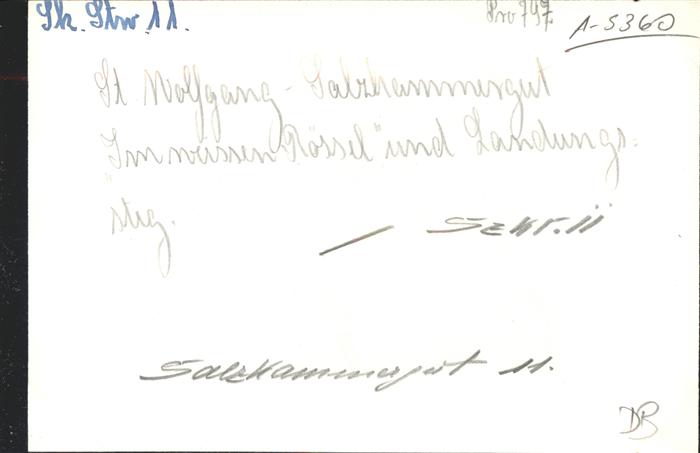 Sk. Strw. 11.
Prov 797.
A-5360
St Wolfgang - Salzkammergut
"Im weissen Rössel" und Landungs=
steg.
/ Szkr. II
Salzkammergut 11.
DB